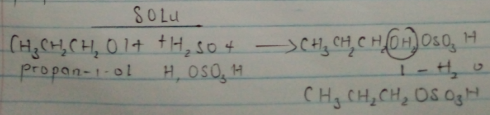 SOLU
CH3CH2CH2OH + H2SO4 → CH3CH2CH2(OH2)OSO3H
propan-1-ol H, OSO3H
1 - H2O
CH3CH2CH2OSO3H